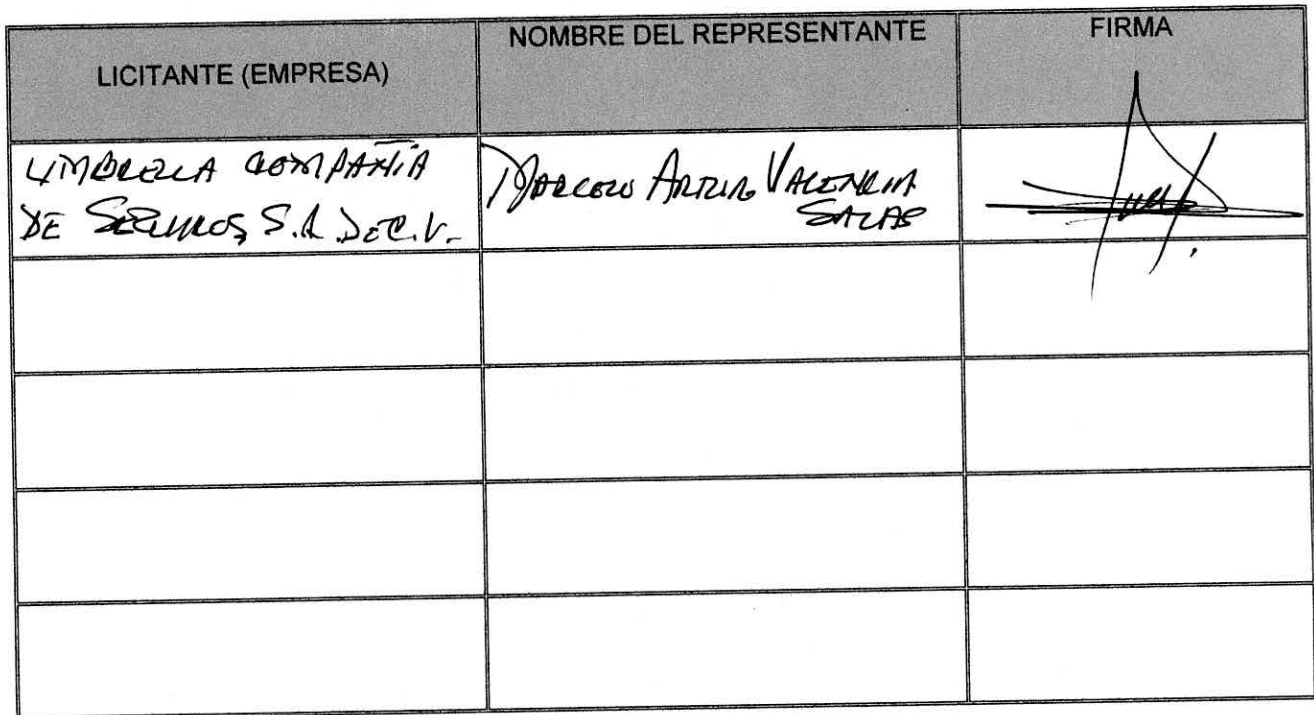 LICITANTE (EMPRESA)
NOMBRE DEL REPRESENTANTE
FIRMA
UMBRELLA COMPAÑIA
DE SEGUROS S.A. DE C.V.
MARCELO ARTURO VALENCIA
SALAS